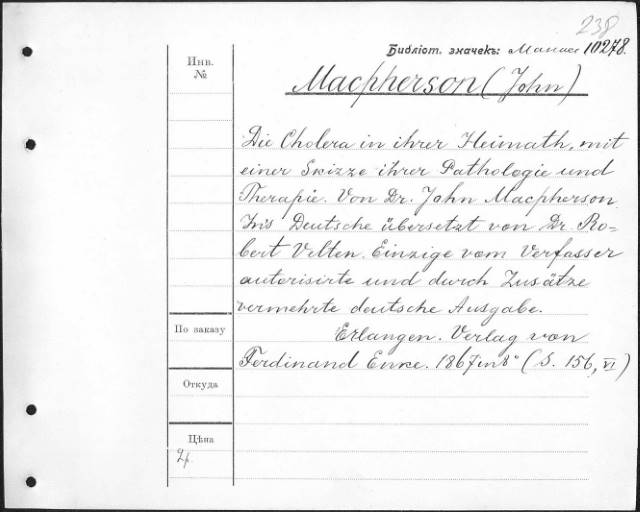 238
Библіот. значекъ: Манасс 10278.
Инв.
№
Macpherson (John)
Die Cholera in ihrer Heimath, mit
einer Skizze ihrer Pathologie und
Therapie. Von Dr. John Macpherson.
Ins Deutsche übersetzt von Dr. Ro=
bert Velten. Einzige vom Verfasser
autorisirte und durch Zusätze
vermehrte deutsche Ausgabe.
Erlangen. Verlag von
Ferdinand Enke. 1867 in 8° (S. 156, VI)
По заказу
Откуда
Цѣна
2р.